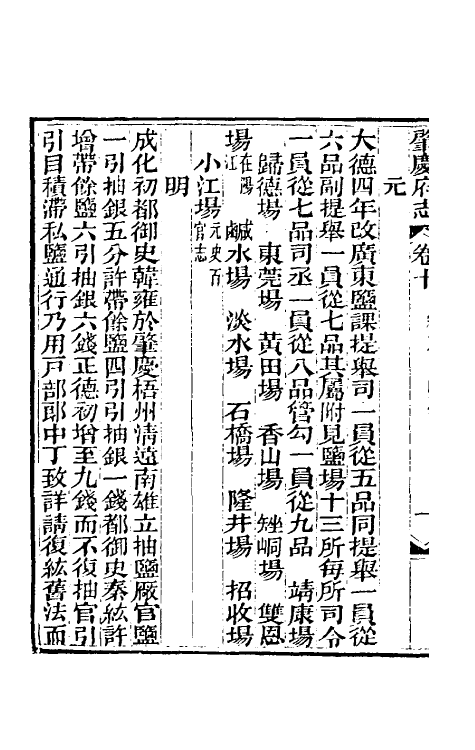 肇慶府志 卷十
元
大德四年改廣東鹽課提舉司一員從五品同提舉一員從
六品副提舉一員從七品其屬附見鹽場十三所每所司令
一員從七品司丞一員從八品管勾一員從九品 靖康場
歸德場 東莞場 黃田場 香山場 矬峒場 雙恩
場在陽江 鹹水場 淡水場 石橋場 隆井場 招收場
小江場元史百官志
明
成化初都御史韓雍於肇慶梧州清遠南雄立抽鹽厰官鹽
一引抽銀五分許帶餘鹽四引引抽銀一錢都御史秦紘許
增帶餘鹽六引抽銀六錢正德初增至九錢而不復抽官引
引目積滯私鹽通行乃用戸部郎中丁致詳請復紘舊法而